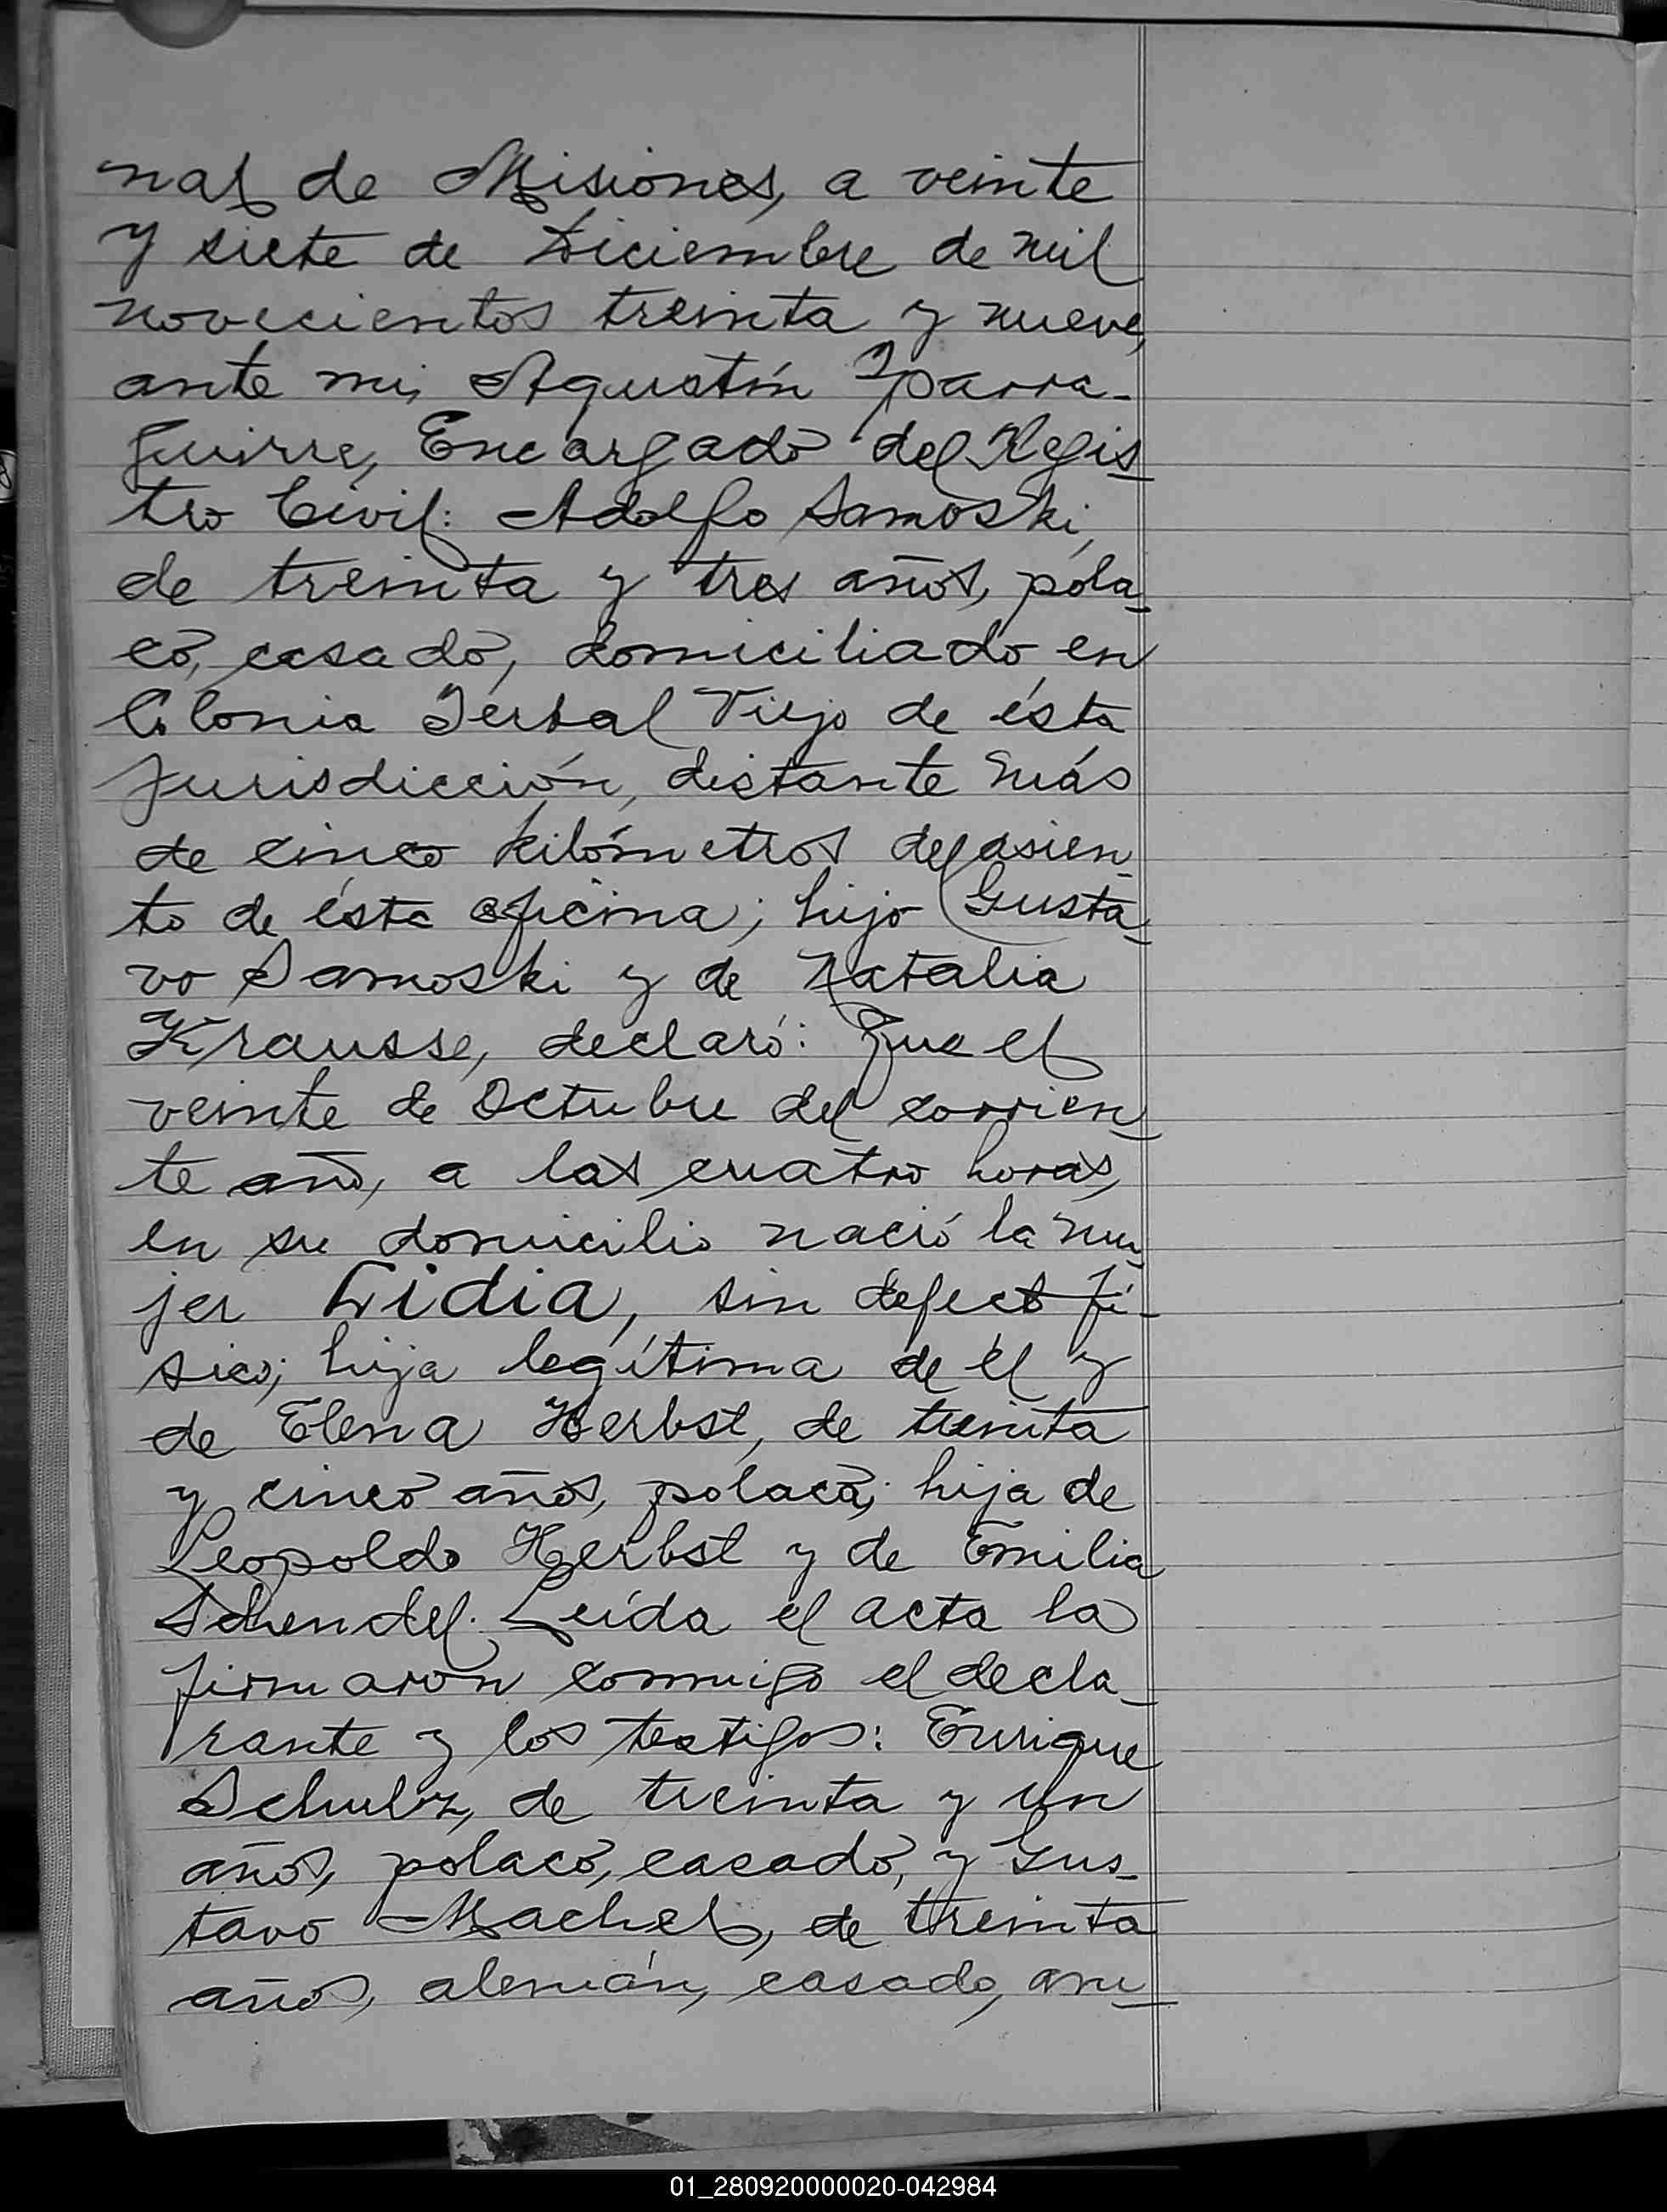 nal de Misiones, a veinte
y siete de Diciembre de mil
novecientos treinta y nueve,
ante mi, Agustín Iparra-
guirre, Encargado del Regis-
tro Civil: Adolfo Samoski,
de treinta y tres años, pola-
co, casado, domiciliado en
Colonia Yerbal Viejo de ésta
Jurisdicción, distante más
de cinco kilómetros del asien-
to de ésta oficina; hijo Gusta-
vo Samoski y de Natalia
Krausse, declaró: Que el
veinte de Octubre del corrien-
te año, a las cuatro horas,
en su domicilio nació la mu-
jer Lidia, sin defecto fí-
sico; hija legítima de él y
de Elena Herbst, de treinta
y cinco años, polaca; hija de
Leopoldo Herbst y de Emilia
Schendel. Leída el acta la
firmaron conmigo el decla-
rante y los testigos: Enrique
Schulz, de treinta y un
años, polaco, casado, y Gus-
tavo Machel, de treinta
años, alemán, casado, am-
01_280920000020-042984